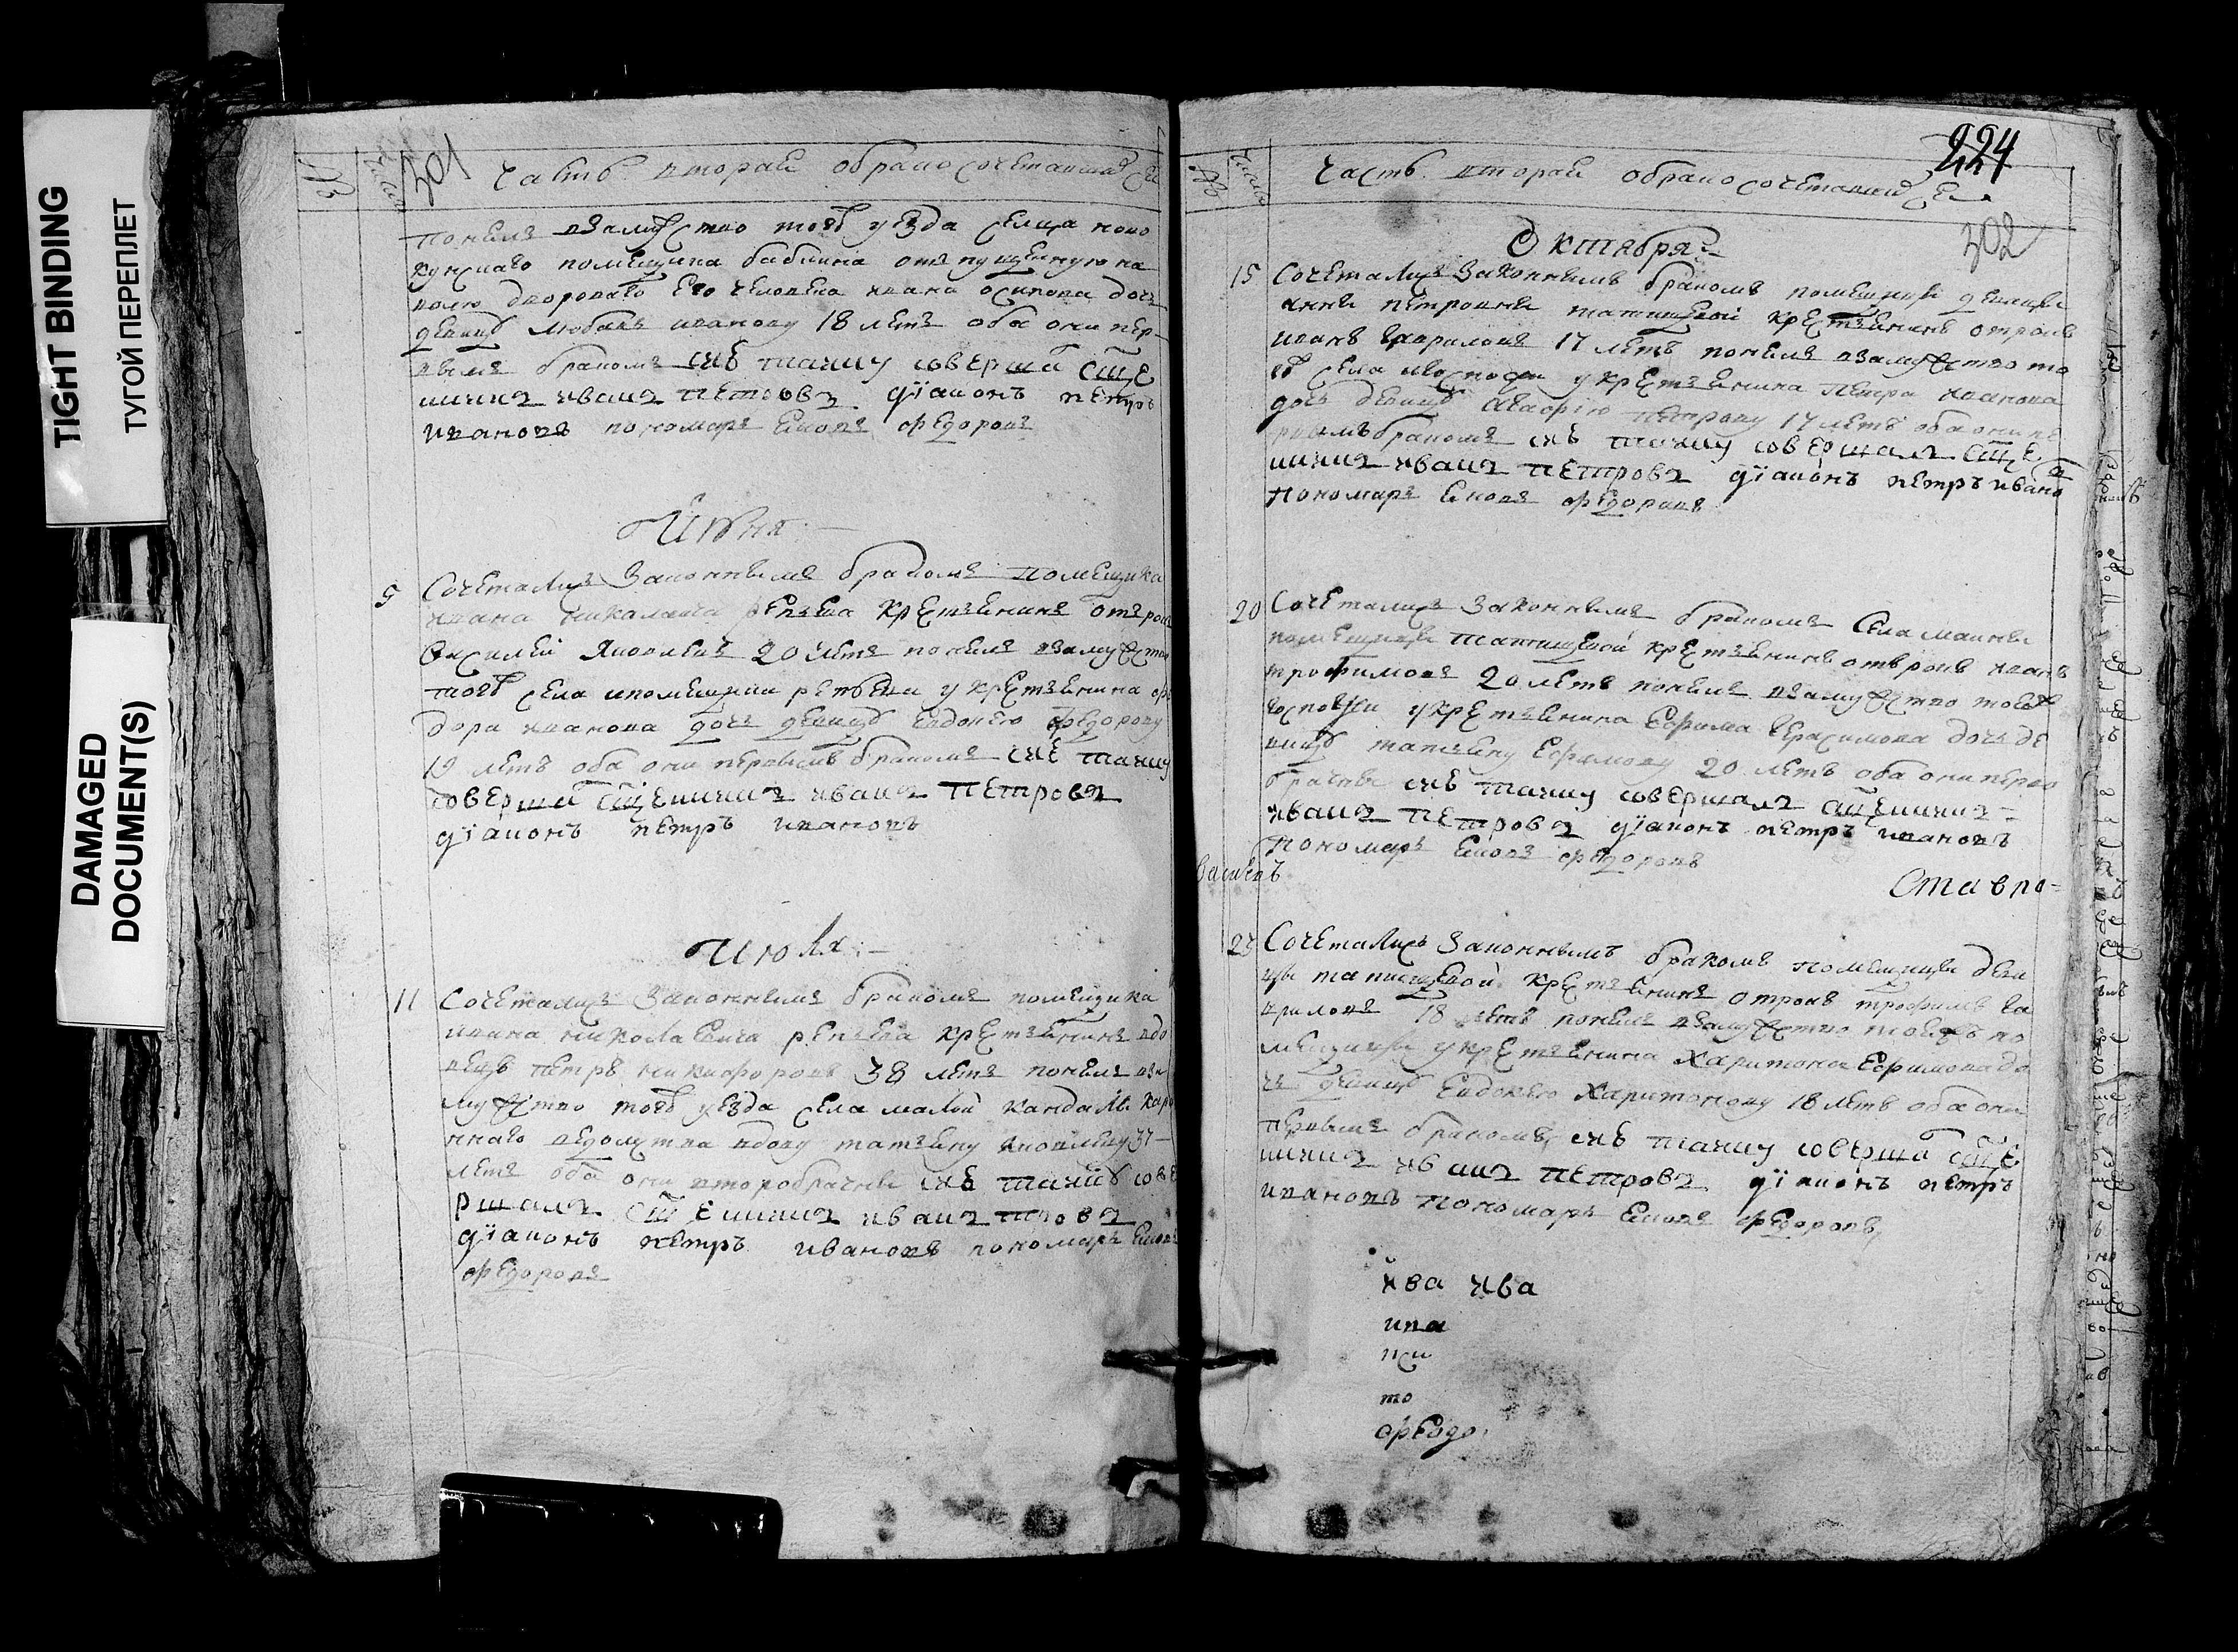 TIGHT BINDING
ТУГОЙ ПЕРЕПЛЕТ
DAMAGED
DOCUMENT(S)
301
часть вторая о брако сочетавшихся
понелъ взамужство тогоѣ уезда селца ново
помещика бабкина отпущенную на
волю дворового его человека ивана осипова дочь
девицу любовь иванову 18 летъ оба они пер
вымъ бракомъ сие таину соверша сще
ниникъ иванъ петровъ діаконъ петръ
ивановъ пономарь федоровъ
Июня
5 Сочеталисъ законнымъ бракомъ помещика
ивана николаича репьева крестьянинъ отрокъ
Василей Яковлевъ 20 летъ понелъ взамужство
тогоѣ села и помещика репьева у крестьянина фе
дора иванова дочь девицу евдокею федорову
19 летъ оба они первымъ бракомъ сие таину
соверша сщенникъ иванъ петровъ
діаконъ петръ ивановъ
Июля
11 Сочеталисъ законнымъ бракомъ помещика
ивана николаевича репьева крестьянинъ вдо
вецъ петръ никифоровъ 38 летъ понелъ вза
мужство тогоѣ уезда села малой кандалы
ведомства вдову татьяну яковлеву 37
летъ оба они второбрачные сие таину сове
ршалъ сщенникъ иванъ петровъ
діаконъ петръ ивановъ пономарь
федоровъ
224
302
часть вторая о брако сочетавшихся
Октября
15 Сочеталисъ законнымъ бракомъ помещицы девицы
анны петровны татищевой крестьянинъ отрокъ
иванъ гавриловъ 17 летъ понелъ взамужство то
гоѣ села и госпожи у крестьянина петра иванова
дочь девицу петрову 17 летъ оба они пе
рвымъ бракомъ сие таину совершалъ сще
ниникъ иванъ петровъ діаконъ петръ ивано
пономарь федоровъ
20 Сочеталисъ законнымъ бракомъ села маины
помещицы татищевой крестьянинъ отрокъ иванъ
трофимовъ 20 летъ понелъ взамужство тоеже
госпожи у крестьянина Ефима Герасимова дочь де
вицу татьяну Ефимову 20 летъ оба они перво
брачные сие таину совершалъ сщенникъ
иванъ петровъ діаконъ петръ ивановъ
пономарь федоровъ
Ставро
23 Сочеталисъ законнымъ бракомъ помещицы деви
цы татищевой крестьянинъ отрокъ трофимъ га
вриловъ 18 летъ понелъ взамужство тоежъ по
мещицы у крестьянина Харитона Ефимова до
чь девицу Евдокею Харитонову 18 летъ оба они
первымъ бракомъ сие таину соверша сще
ниникъ иванъ петровъ діаконъ петръ
ивановъ пономарь федоровъ
ива ива
ива
то
федо